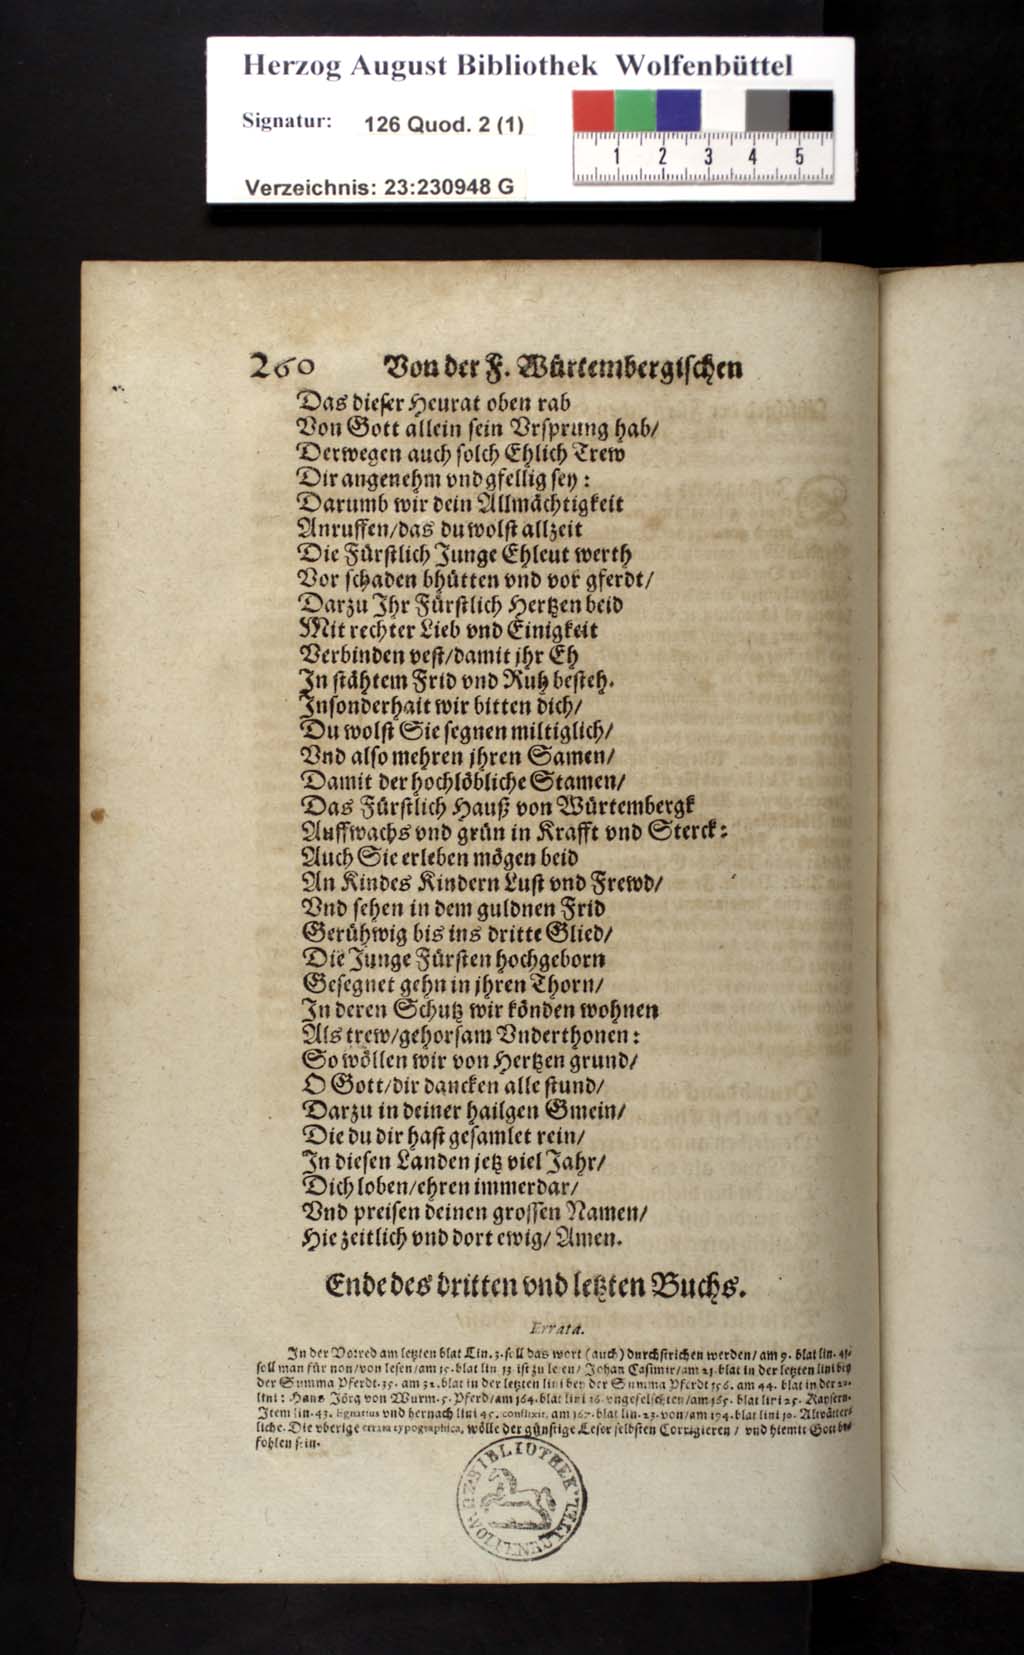 Herzog August Bibliothek Wolfenbüttel
Signatur: 126 Quod. 2 (1)
1 2 3 4 5
Verzeichnis: 23:230948 G
260 Von der F. Würtembergischen
Das dieser Heurat oben rab
Von Gott allein sein Vrsprung hab/
Derwegen auch solch Ehlich Trew
Dir angenehm vnd gfellig sey:
Darumb wir dein Allmächtigkeit
Anruffen/das du wolst allzeit
Die Fürstlich Junge Ehleut werth
Vor schaden bhütten vnd vor gferdt/
Darzu Ihr Fürstlich Hertzen beid
Mit rechter Lieb vnd Einigkeit
Verbinden vest/damit jhr Eh
In stähtem Frid vnd Ruh besteh.
Insonderhait wir bitten dich/
Du wolst Sie segnen miltiglich/
Vnd also mehren jhren Samen/
Damit der hochlöbliche Stamen/
Das Fürstlich Hauß von Würtembergk
Auffwachs vnd grün in Krafft vnd Sterck:
Auch Sie erleben mögen beid
An Kindes Kindern Lust vnd Frewd/
Vnd sehen in dem guldnen Frid
Gerühwig bis ins dritte Glied/
Die Junge Fürsten hochgeborn
Gesegnet gehn in jhren Thorn/
In deren Schutz wir könden wohnen
Als trew/gehorsam Vnderthonen:
So wöllen wir von Hertzen grund/
O Gott/dir dancken alle stund/
Darzu in deiner hailgen Gmein/
Die du dir hast gesamlet rein/
In diesen Landen jetz viel Jahr/
Dich loben/ehren immerdar/
Vnd preisen deinen grossen Namen/
Hie zeitlich vnd dort ewig/ Amen.
Ende des dritten vnd letzten Buchs.
Errata.
In der Vorred am letzten blat Lin. 3. soll das wort (auch) durchstrichen werden/ am 9. blat lin. 41.
soll man für non/von lesen/am 15. blat lin. 13. ist zu lesen/ Johan Casimir/am 21. blat in der letzten lini bey
der Summa Pferdt. 35. am 32. blat in der letzten lini bey der Summa Pferdt 156. am 44. blat in der 22.
lini: Hans Jörg von Wurm. 5. Pferd/am 164. blat lini 16. vngefelschten/am 165. blat lini 25. Kaysern.
Item lin. 43. vnd hernach lini 45. conflixit, am 167. blat lin. 23. von/am 174. blat lini 10. Altvätter-
liche. Die vberige errata typographica, wölle der günstige Leser selbsten Corrigieren / vnd hiemit Gott be-
fohlen sein.
BIBLIOTHEK